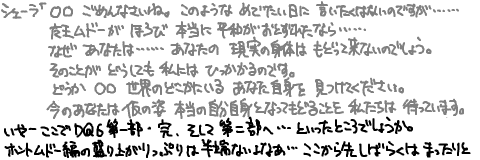 シェーラ「○○ ごめんなさいね。このような めでたい日に 言いたくはないのですが……
大王ムドーが ほろび 本当に 平和が おとずれたなら……
なぜ あなたは…… あなたの 現実の身体は もどって来ないのでしょう。
そのことが どうしても 私には ひっかかるのです。
どうか ○○ 世界のどこかにいる あなた自身を 見つけてください。
今のあなたは 仮の姿 本当の自分自身となってもどることを 私たちは 待っています。
いやーここでDQ6第一部・完、そして第二部へ…といったところでしょうか。
ホントムドー編の盛り上がりっぷりは半端ないよなあ…ここから先しばらくはまったりと